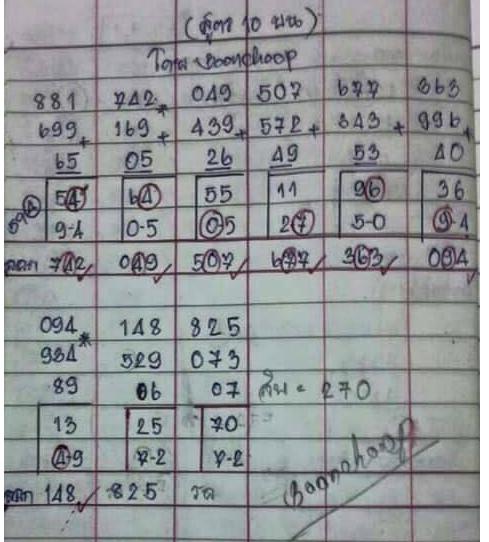 (สูตร 10 บน)
โดย Boonchoop
881 742 049 507 677 363
699+ 169+ 439+ 572+ 343+ 996+
65 05 26 49 53 40
54 64 55 11 96 36
9-4 0-5 0-5 27 5-0 9-4
ออก 742 049 507 677 363 094
094 148 825
934 529 073
89 06 07 สิบ = 270
13 25 70
4-9 7-2 7-2
ออก 148 825 รอ
Boonchoop